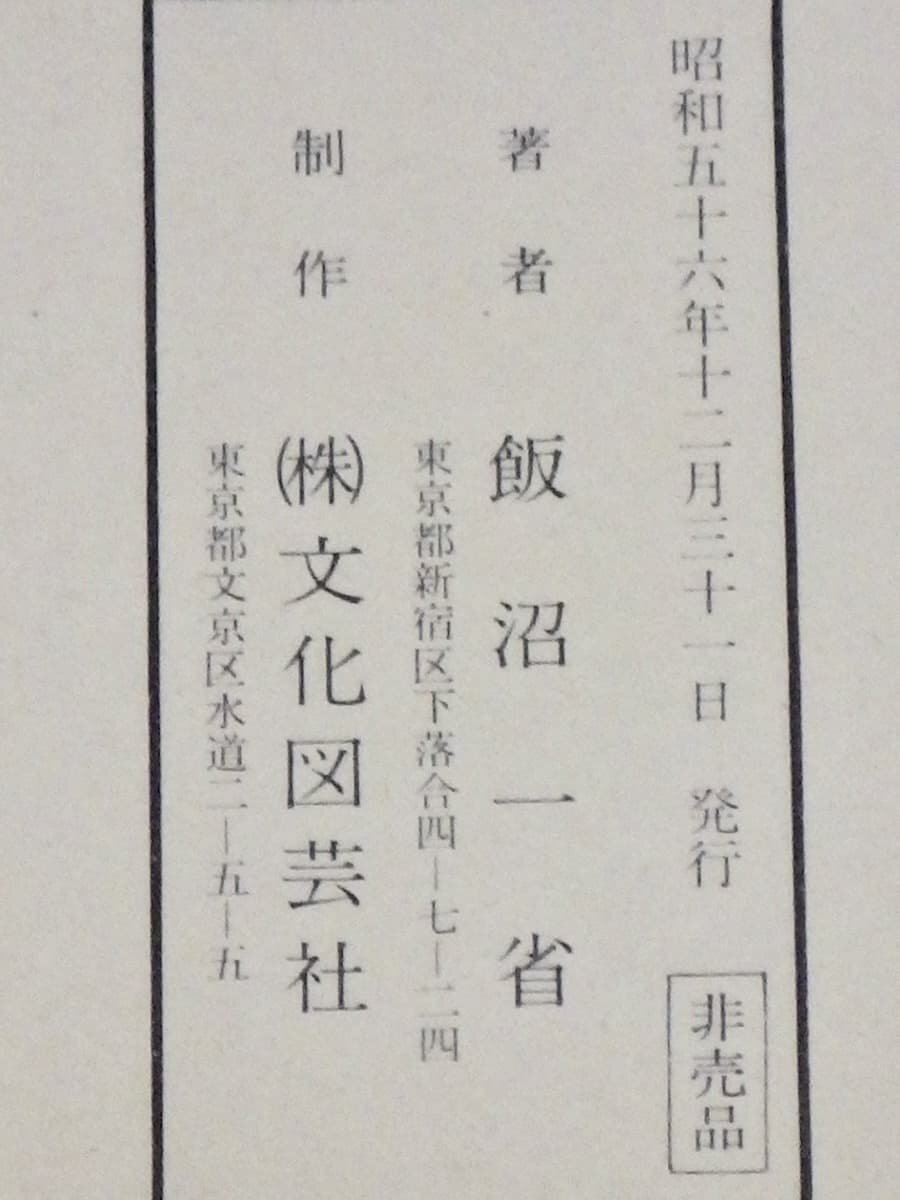 昭和五十六年十二月三十一日　発行　非売品
著者　飯沼一省
東京都新宿区下落合四ー七ー二四
制作　㈱文化図芸社
東京都文京区水道二ー五ー五